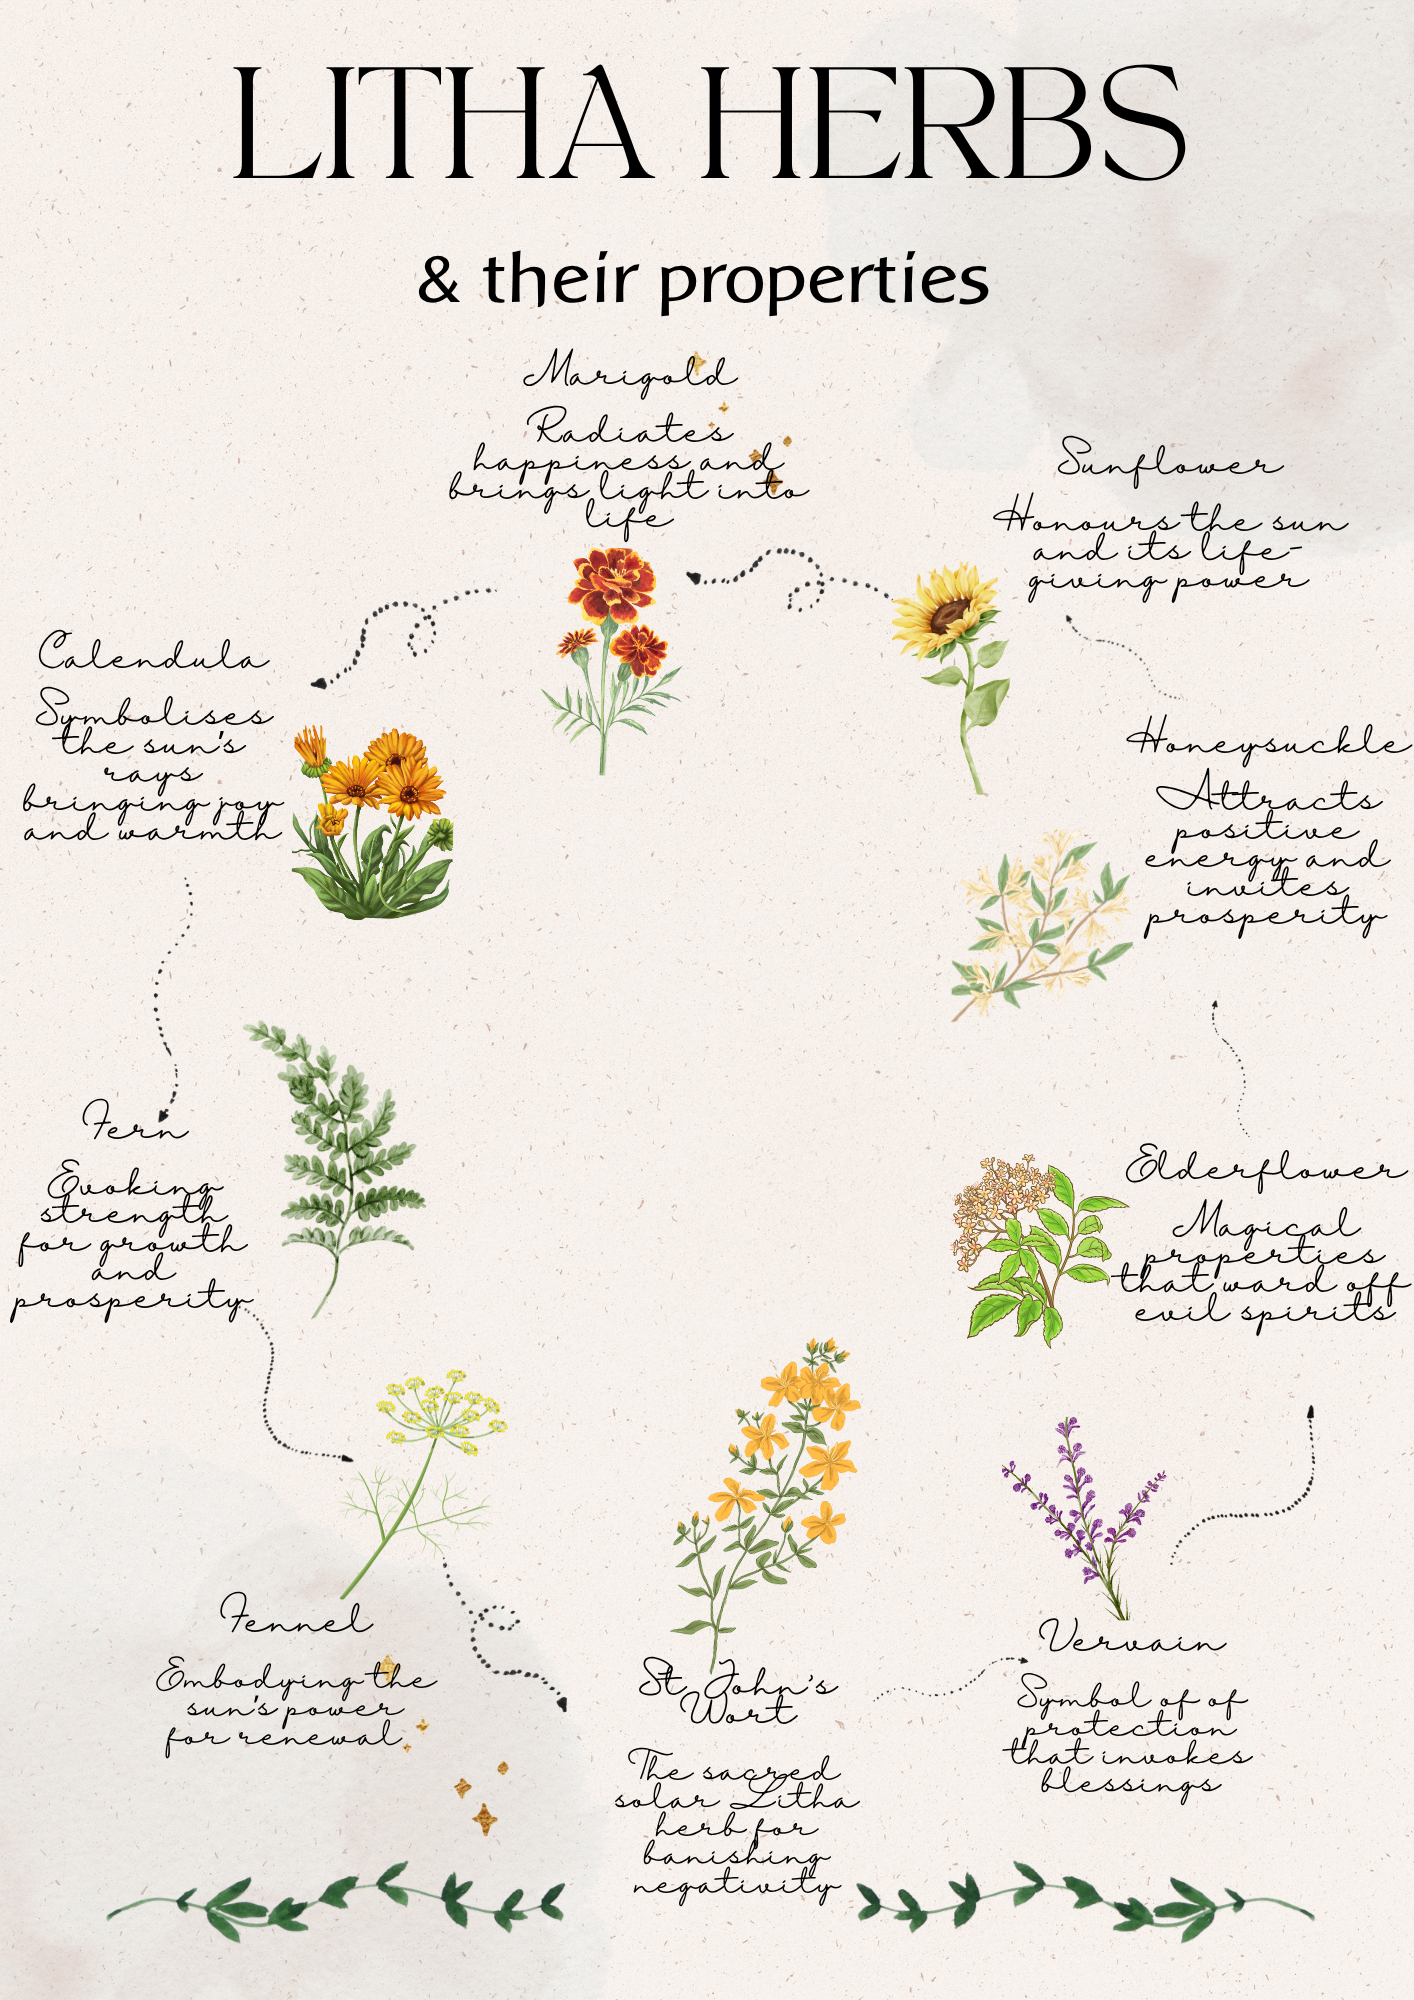 LITHA HERBS
& their properties
Marigold
Radiates
happiness and
brings light into
life
Sunflower
Honours the sun
and its life-
giving power
Calendula
Symbolises
the sun's
rays
bringing joy
and warmth
Honeysuckle
Attracts
positive
energy and
invites
prosperity
Fern
Evoking
strength
for growth
and
prosperity
Elderflower
Magical
properties
that ward off
evil spirits
Fennel
Embodying the
sun's power
for renewal
St John's
Wort
The sacred
solar Litha
herb for
banishing
negativity
Vervain
Symbol of of
protection
that invokes
blessings